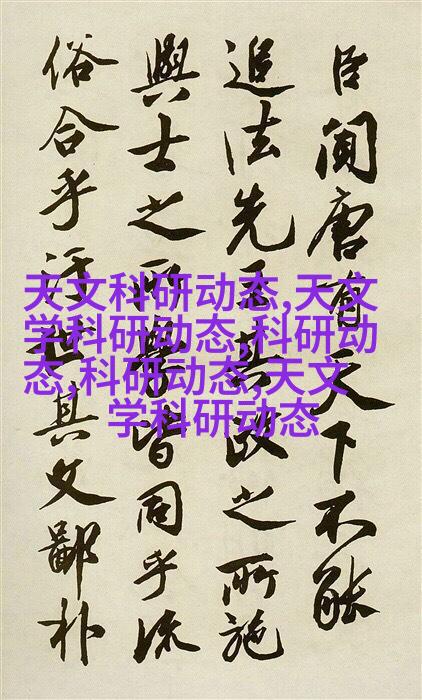 臣聞唐有天下不能
追法先王其政之所施
與士之所皆同乎流
俗合乎汙世其文鄙朴
天文科研动态,天文
学科研动态,科研动
态,科研动态,天文
学科研动态